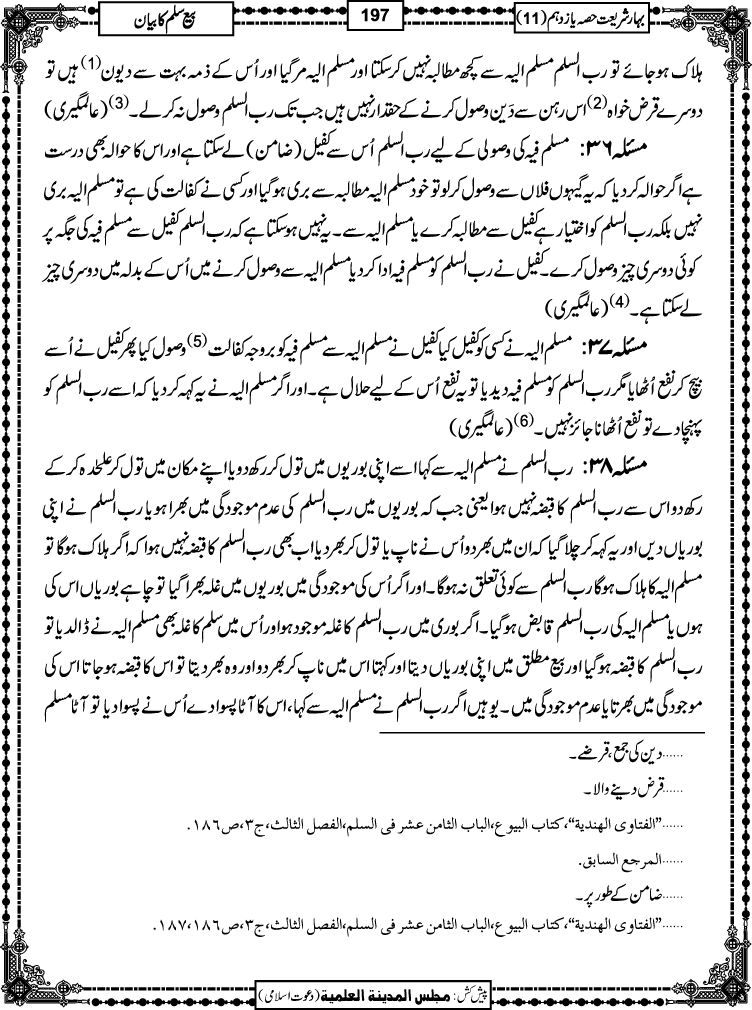 بہارِ شریعت حصہ یازدہم (11)
197
بیع سلم کا بیان
ہلاک ہوجائے تو رب السلم مسلم الیہ سے کچھ مطالبہ نہیں کرسکتا اور مسلم الیہ مرگیا اور اُس کے ذمہ بہت سے دیون (1) ہیں تو
دوسرے قرض خواہ (2) اس رہن سے دَین وصول کرنے کے حقدار نہیں ہیں جب تک رب السلم وصول نہ کرلے۔ (3) (عالمگیری)
مسئلہ ۳۶: مسلم فیہ کی وصولی کے لیے رب السلم اُس سے کفیل (ضامن) لے سکتا ہے اور اس کا حوالہ بھی درست
ہے اگر حوالہ کردیا کہ یہ گیہوں فلاں سے وصول کرلو تو خود مسلم الیہ مطالبہ سے بری ہوگیا اور کسی نے کفالت کی ہے تو مسلم الیہ بری
نہیں بلکہ رب السلم کو اختیار ہے کفیل سے مطالبہ کرے یا مسلم الیہ سے۔ یہ نہیں ہوسکتا ہے کہ رب السلم کفیل سے مسلم فیہ کی جگہ پر
کوئی دوسری چیز وصول کرے۔ کفیل نے رب السلم کو مسلم فیہ ادا کردیا مسلم الیہ سے وصول کرنے میں اُس کے بدلہ میں دوسری چیز
لے سکتا ہے۔ (4) (عالمگیری)
مسئلہ ۳۷: مسلم الیہ نے کسی کو کفیل کیا کفیل نے مسلم الیہ سے مسلم فیہ کو بروجہ کفالت (5) وصول کیا پھر کفیل نے اُسے
بیچ کر نفع اُٹھایا مگر رب السلم کو مسلم فیہ دیدیا تو یہ نفع اُس کے لیے حلال ہے۔ اور اگر مسلم الیہ نے یہ کہہ کر دیا کہ اسے رب السلم کو
پہنچادے تو نفع اُٹھانا جائز نہیں۔ (6) (عالمگیری)
مسئلہ ۳۸: رب السلم نے مسلم الیہ سے کہا اسے اپنی بوریوں میں تول کر رکھ دو یا اپنے مکان میں تول کر علٰحدہ کرکے
رکھ دو اس سے رب السلم کا قبضہ نہیں ہوا یعنی جب کہ بوریوں میں رب السلم کی عدم موجودگی میں بھرا ہو یا رب السلم نے اپنی
بوریاں دیں اور یہ کہہ کر چلا گیا کہ ان میں بھر دو اُس نے ناپ یا تول کر بھر دیا اب بھی رب السلم کا قبضہ نہیں ہوا کہ اگر ہلاک ہوگا تو
مسلم الیہ کا ہلاک ہوگا رب السلم سے کوئی تعلق نہ ہوگا۔ اور اگر اُس کی موجودگی میں بوریوں میں غلہ بھرا گیا تو چاہے بوریاں اس کی
ہوں یا مسلم الیہ کی رب السلم قابض ہوگیا۔ اگر بوری میں رب السلم کا غلہ موجود ہو اور اُس میں سلم کا غلہ بھی مسلم الیہ نے ڈالدیا تو
رب السلم کا قبضہ ہوگیا اور بیع مطلق میں اپنی بوریاں دیتا اور کہتا اس میں ناپ کر بھر دو اور وہ بھر دیتا تو اس کا قبضہ ہوجاتا اس کی
موجودگی میں بھرتا یا عدم موجودگی میں۔ یوہیں اگر رب السلم نے مسلم الیہ سے کہا، اس کا آٹا پسوادے اُس نے پسوا دیا تو آٹا مسلم
......دین کی جمع، قرضے۔
......قرض دینے والا۔
......"الفتاوى الهندية"، كتاب البيوع، الباب الثامن عشر فى السلم، الفصل الثالث، ج٣، ص١٨٦.
......المرجع السابق.
......ضامن کے طور پر۔
......"الفتاوى الهندية"، كتاب البيوع، الباب الثامن عشر فى السلم، الفصل الثالث، ج٣، ص١٨٦، ١٨٧.
پیش کش: مجلس المدینۃ العلمیۃ (دعوت اسلامی)